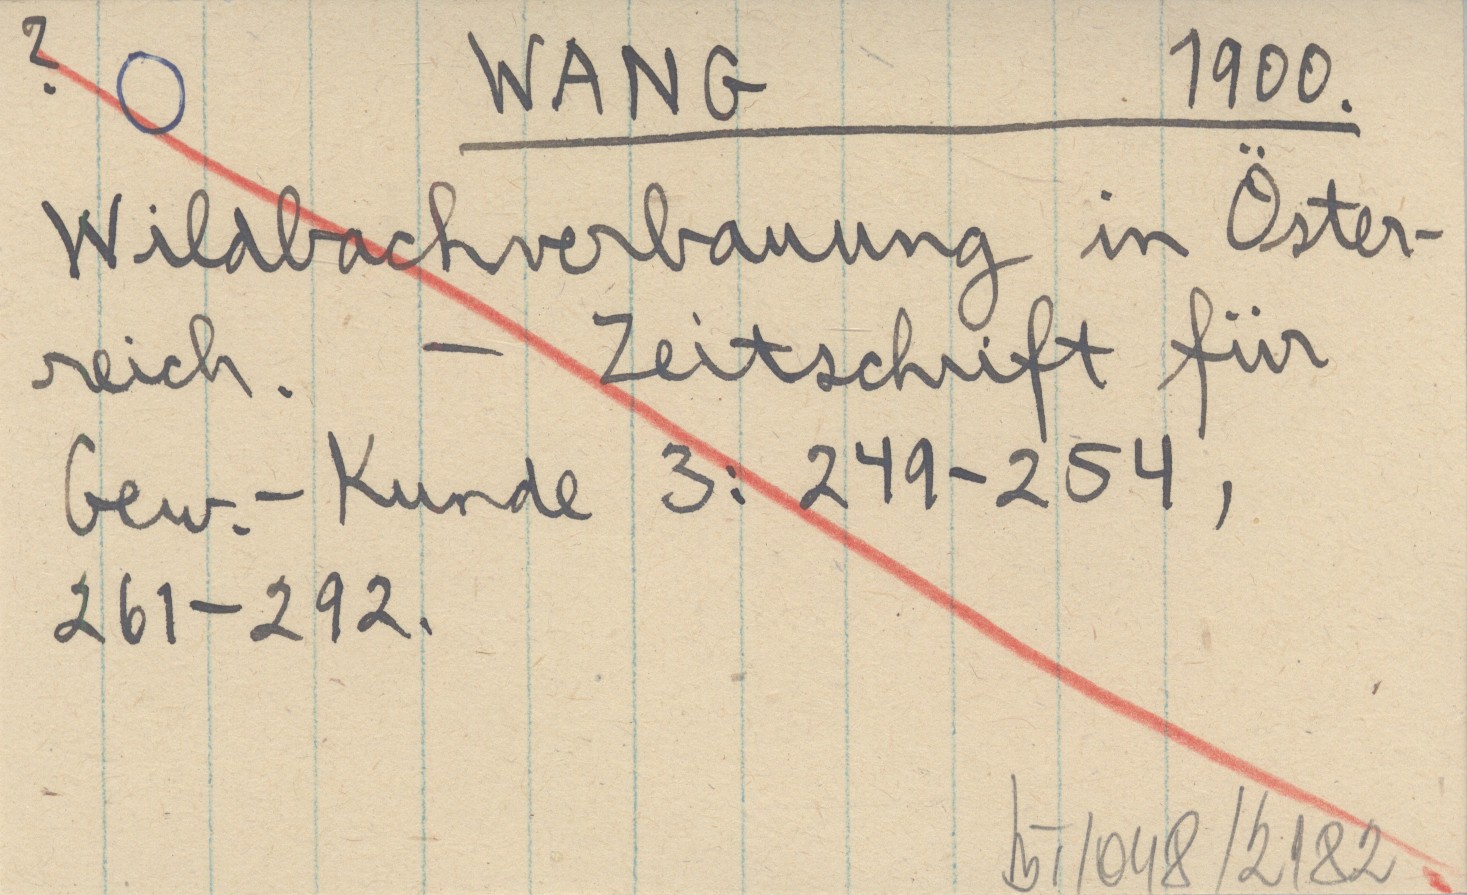 ?
WANG 1900.
Wildbachverbauung in Öster-
reich. – Zeitschrift für
Gew.-Kunde 3: 249-254,
261-292.
/048/2182